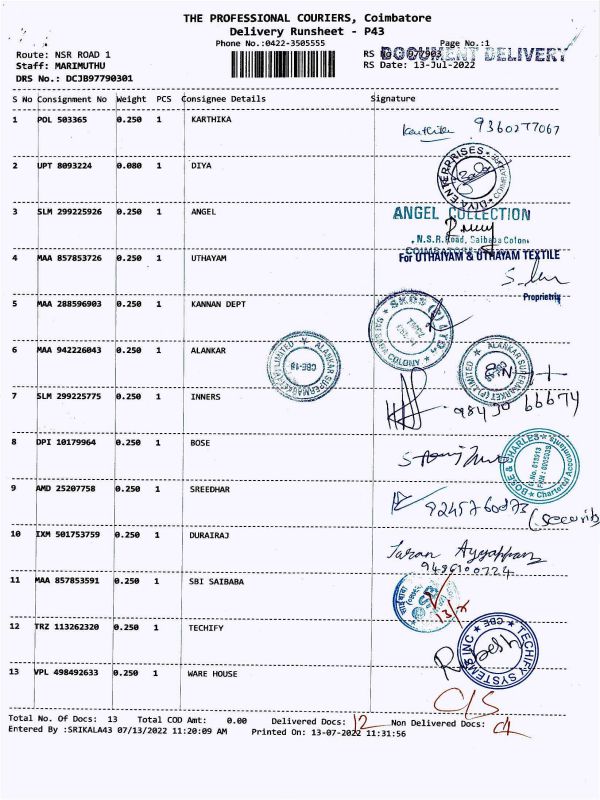 THE PROFESSIONAL COURIERS, Coimbatore
Delivery Runsheet - P43
Phone No.:0422-3505555
Page No.:1
Route: NSR ROAD 1
RS No.: 977903
DOCUMENT DELIVERY
Staff: MARIMUTHU
RS Date: 13-Jul-2022
DRS No.: DCJB97790301
S No Consignment No Weight PCS Consignee Details Signature
1 POL 503365 0.250 1 KARTHIKA
Karthika 9360277067
2 UPT 8093224 0.080 1 DIYA
DIYA ENTERPRISES
3 SLM 299225926 0.250 1 ANGEL
ANGEL COLLECTION
N.S.R.Road, Saibaba Colony
COIMBATORE
4 MAA 857853726 0.250 1 UTHAYAM
For UTHAIYAM & UTHAYAM TEXTILE
Proprietrix
5 MAA 288596903 0.250 1 KANNAN DEPT
COLONY
6 MAA 942226043 0.250 1 ALANKAR
ALANKAR SUPERMARKET (P) LIMITED
CBE-18
ALANKAR SUPERMARKET (P) LIMITED
7 SLM 299225775 0.250 1 INNERS
98430 66674
8 DPI 10179964 0.250 1 BOSE
BOSE & CHARLES
Chartered Accountants
9 AMD 25207758 0.250 1 SREEDHAR
(Security
10 IXM 501753759 0.250 1 DURAIRAJ
Taran Ayyappan
9486100724
11 MAA 857853591 0.250 1 SBI SAIBABA
13/7
12 TRZ 113262320 0.250 1 TECHIFY
TECHIFY SYSTEMS INC
CBE
13 VPL 498492633 0.250 1 WARE HOUSE
C/S
Total No. Of Docs: 13 Total COD Amt: 0.00 Delivered Docs: 12 Non Delivered Docs:
Entered By :SRIKALA43 07/13/2022 11:20:09 AM Printed On: 13-07-2022 11:31:56